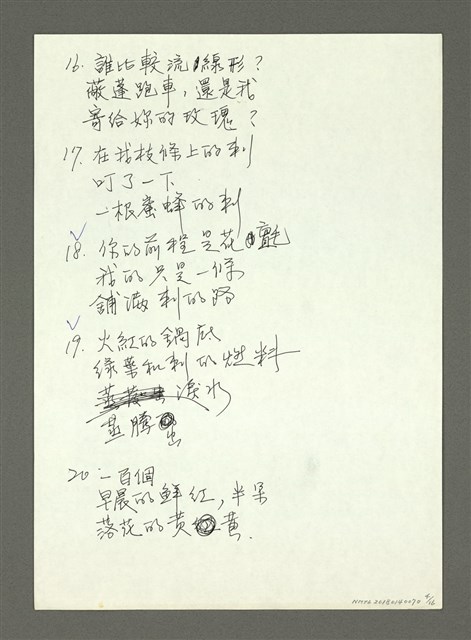 16. 誰比較流線形？
蔽蓬跑車，還是我
寄給妳的玫瑰？
17. 在我枝條上的刺
叮了一下
一根蜜蜂的刺
18. 你的前程是花氈
我的只是一條
鋪滿刺的路
19. 火紅的鍋底
綠葉和刺的燃料
淚水
蒸騰出
20. 一百個
早晨的鮮紅，半朵
落花的黃黃.
NMTL20180140070 4/16